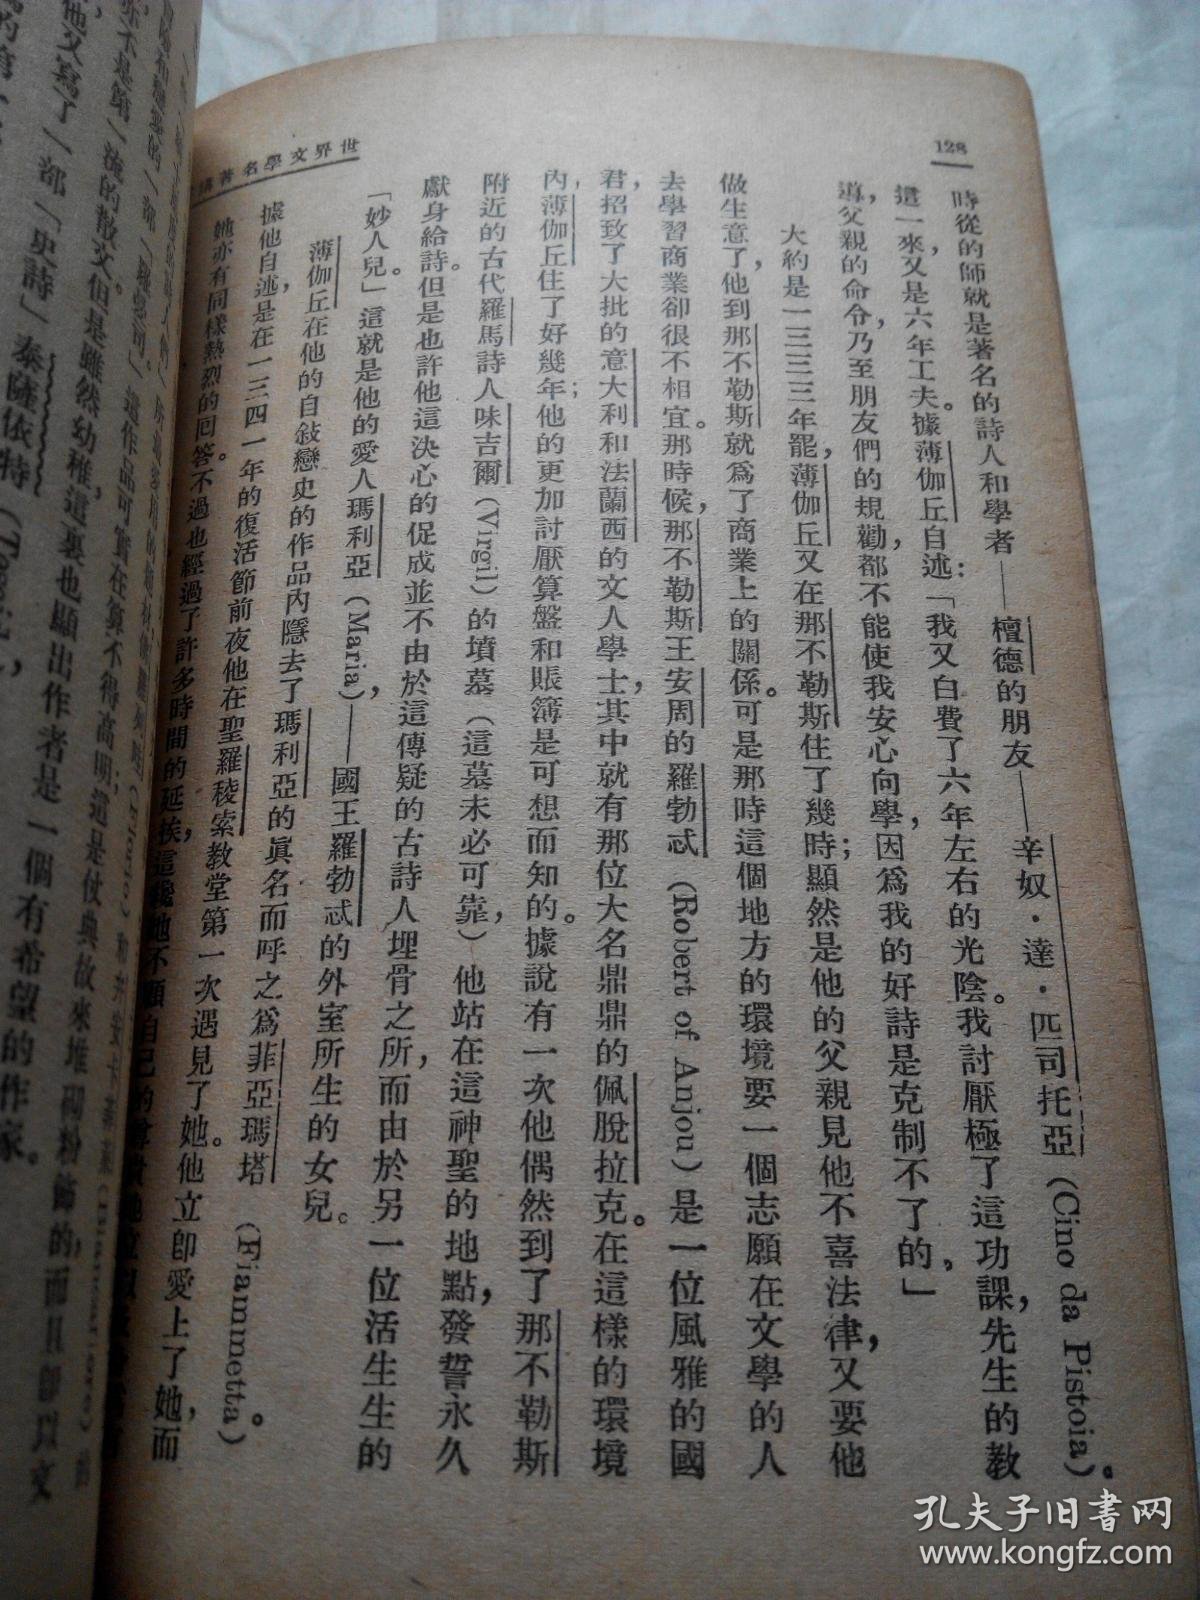 128
世界文學名著
時從的師就是著名的詩人和學者——檀德的朋友——辛奴·達·匹司托亞（Cino da Pistoia）。
這一來，又是六年工夫。據薄伽丘自述：「我又白費了六年左右的光陰。我討厭極了這功課，先生的教
導，父親的命令，乃至朋友們的規勸，都不能使我安心向學，因爲我的好詩是克制不了的。」
大約是一三三三年罷，薄伽丘又在那不勒斯住了幾時；顯然是他的父親見他不喜法律，又要他
做生意了，他到那不勒斯就爲了商業上的關係。可是那時這個地方的環境要一個志願在文學的人
去學習商業卻很不相宜。那時候，那不勒斯王安周的羅勃忒（Robert of Anjou）是一位風雅的國
君，招致了大批的意大利和法蘭西的文人學士，其中就有那位大名鼎鼎的佩脫拉克。在這樣的環境
內，薄伽丘住了好幾年；他的更加討厭算盤和賬簿是可想而知的。據說有一次他偶然到了那不勒斯
附近的古代羅馬詩人味吉爾（Virgil）的墳墓（這墓未必可靠），他站在這神聖的地點，發誓永久
獻身給詩。但是也許他這決心的促成並不由於這傳疑的古詩人埋骨之所，而由於另一位活生生的
「妙人兒。」這就是他的愛人瑪利亞（Maria），——國王羅勃忒的外室所生的女兒。
薄伽丘在他的自敍戀史的作品內隱去了瑪利亞的眞名而呼之爲菲亞瑪塔（Fiammetta）。
據他自述，是在一三四一年的復活節前夜他在聖羅稜索教堂第一次遇見了她。他立卽愛上了她，而
她亦有同樣熱烈的回答。不過也經過了許多時間的延挨，這纔她不顧自己的
他又寫了一部「史詩」泰薩依特
亦不是第一流的散文。但是雖然幼稚，這裏也顯出作者是一個有希望的作家。
這作品可實在算不得高明；這是仗典故來堆砌粉飾的，而且卻以文
孔夫子旧书网
www.kongfz.com